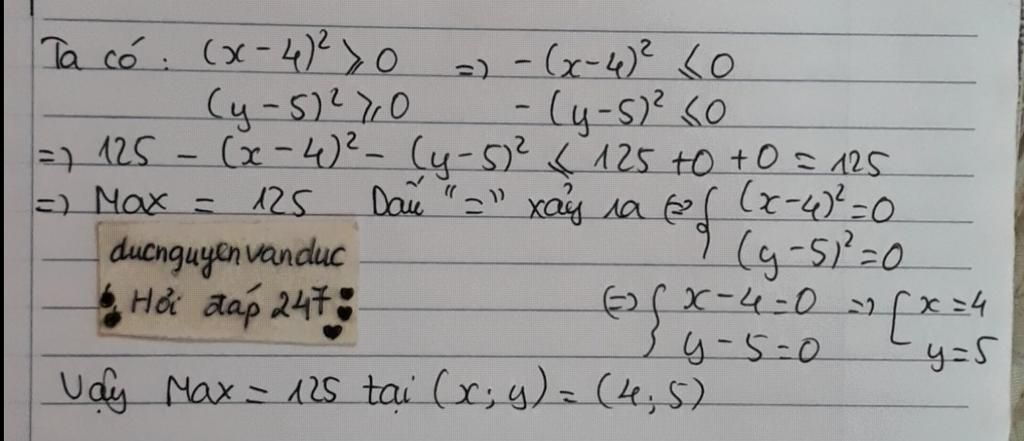 Ta có : (x-4)² ⩾ 0 => -(x-4)² ⩽ 0
(y-5)² ⩾ 0 -(y-5)² ⩽ 0
=> 125 - (x-4)² - (y-5)² ⩽ 125 +0 +0 = 125
=> Max = 125 Dấu "=" xảy ra <=> { (x-4)² = 0
(y-5)² = 0
ducnguyenvanduc
Hỏi đáp 247
<=> { x-4=0 => [ x=4
y-5=0 y=5
Vậy Max = 125 tại (x;y) = (4;5)